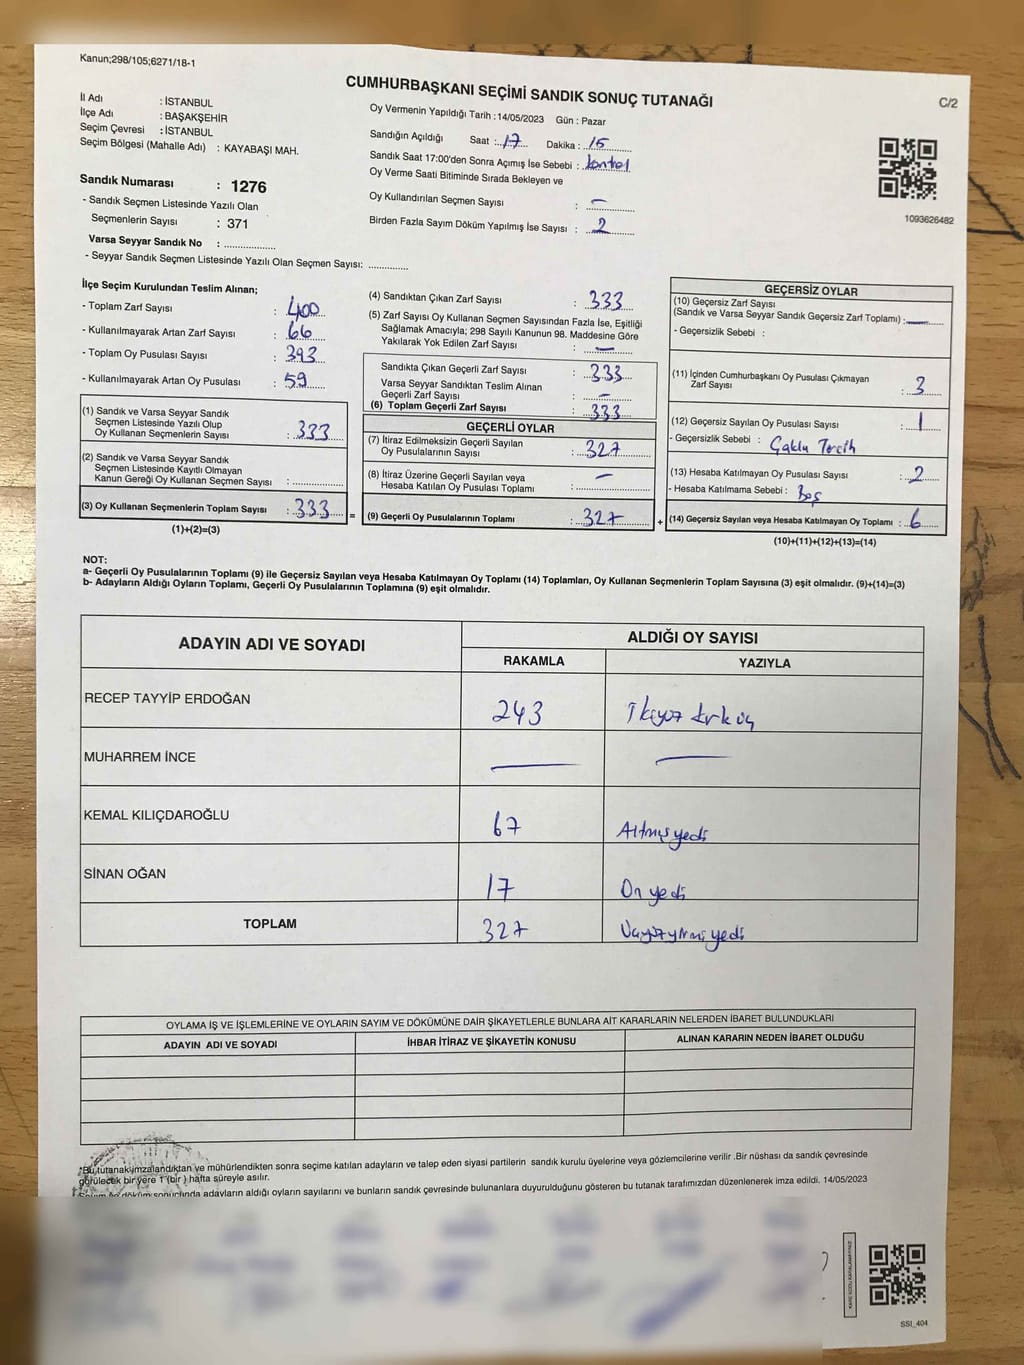 Kanun;298/105;6271/18-1
CUMHURBAŞKANI SEÇİMİ SANDIK SONUÇ TUTANAĞI
C/2
İl Adı : İSTANBUL
İlçe Adı : BAŞAKŞEHİR
Seçim Çevresi : İSTANBUL
Seçim Bölgesi (Mahalle Adı) : KAYABAŞI MAH.
Sandık Numarası : 1276
- Sandık Seçmen Listesinde Yazılı Olan
Seçmenlerin Sayısı : 371
Varsa Seyyar Sandık No : ................
- Seyyar Sandık Seçmen Listesinde Yazılı Olan Seçmen Sayısı: ..............
Oy Vermenin Yapıldığı Tarih : 14/05/2023 Gün : Pazar
Sandığın Açıldığı Saat : 17 Dakika : 15
Sandık Saat 17:00'den Sonra Açımış İse Sebebi : kontrol
Oy Verme Saati Bitiminde Sırada Bekleyen ve
Oy Kullandırılan Seçmen Sayısı : —
Birden Fazla Sayım Döküm Yapılmış İse Sayısı : 2
1093626482
İlçe Seçim Kurulundan Teslim Alınan;
- Toplam Zarf Sayısı : 400
- Kullanılmayarak Artan Zarf Sayısı : 66
- Toplam Oy Pusulası Sayısı : 393
- Kullanılmayarak Artan Oy Pusulası : 59
(1) Sandık ve Varsa Seyyar Sandık
Seçmen Listesinde Yazılı Olup
Oy Kullanan Seçmenlerin Sayısı : 333
(2) Sandık ve Varsa Seyyar Sandık
Seçmen Listesinde Kayıtlı Olmayan
Kanun Gereği Oy Kullanan Seçmen Sayısı : ................
(3) Oy Kullanan Seçmenlerin Toplam Sayısı : 333 =
(1)+(2)=(3)
(4) Sandıktan Çıkan Zarf Sayısı : 333
(5) Zarf Sayısı Oy Kullanan Seçmen Sayısından Fazla İse, Eşitliği
Sağlamak Amacıyla; 298 Sayılı Kanunun 98. Maddesine Göre
Yakılarak Yok Edilen Zarf Sayısı : —
Sandıkta Çıkan Geçerli Zarf Sayısı : 333
Varsa Seyyar Sandıktan Teslim Alınan
Geçerli Zarf Sayısı : —
(6) Toplam Geçerli Zarf Sayısı : 333
GEÇERLİ OYLAR
(7) İtiraz Edilmeksizin Geçerli Sayılan
Oy Pusulalarının Sayısı : 327
(8) İtiraz Üzerine Geçerli Sayılan veya
Hesaba Katılan Oy Pusulası Toplamı : —
(9) Geçerli Oy Pusulalarının Toplamı : 327 +
GEÇERSİZ OYLAR
(10) Geçersiz Zarf Sayısı
(Sandık ve Varsa Seyyar Sandık Geçersiz Zarf Toplamı) : —
- Geçersizlik Sebebi :
(11) İçinden Cumhurbaşkanı Oy Pusulası Çıkmayan
Zarf Sayısı : 3
(12) Geçersiz Sayılan Oy Pusulası Sayısı : 1
- Geçersizlik Sebebi : Çoklu Tercih
(13) Hesaba Katılmayan Oy Pusulası Sayısı : 2
- Hesaba Katılmama Sebebi : Boş
(14) Geçersiz Sayılan veya Hesaba Katılmayan Oy Toplamı : 6
(10)+(11)+(12)+(13)=(14)
NOT:
a- Geçerli Oy Pusulalarının Toplamı (9) ile Geçersiz Sayılan veya Hesaba Katılmayan Oy Toplamı (14) Toplamları, Oy Kullanan Seçmenlerin Toplam Sayısına (3) eşit olmalıdır. (9)+(14)=(3)
b- Adayların Aldığı Oyların Toplamı, Geçerli Oy Pusulalarının Toplamına (9) eşit olmalıdır.
ADAYIN ADI VE SOYADI ALDIĞI OY SAYISI
RAKAMLA YAZIYLA
RECEP TAYYİP ERDOĞAN 243 İkiyüz kırk üç
MUHARREM İNCE — —
KEMAL KILIÇDAROĞLU 67 Altmış yedi
SİNAN OĞAN 17 On yedi
TOPLAM 327 Üçyüzyirmi yedi
OYLAMA İŞ VE İŞLEMLERİNE VE OYLARIN SAYIM VE DÖKÜMÜNE DAİR ŞİKAYETLERLE BUNLARA AİT KARARLARIN NELERDEN İBARET BULUNDUKLARI
ADAYIN ADI VE SOYADI İHBAR İTİRAZ VE ŞİKAYETİN KONUSU ALINAN KARARIN NEDEN İBARET OLDUĞU
*Bu tutanak imzalandıktan ve mühürlendikten sonra seçime katılan adayların ve talep eden siyasi partilerin sandık kurulu üyelerine veya gözlemcilerine verilir .Bir nüshası da sandık çevresinde
görülecek bir yere 1 (bir ) hafta süreyle asılır.
Sayım ve döküm sonucunda adayların aldığı oyların sayılarını ve bunların sandık çevresinde bulunanlara duyurulduğunu gösteren bu tutanak tarafımızdan düzenlenerek imza edildi. 14/05/2023
KARE KODU KARALAMAYINIZ
SSI_404